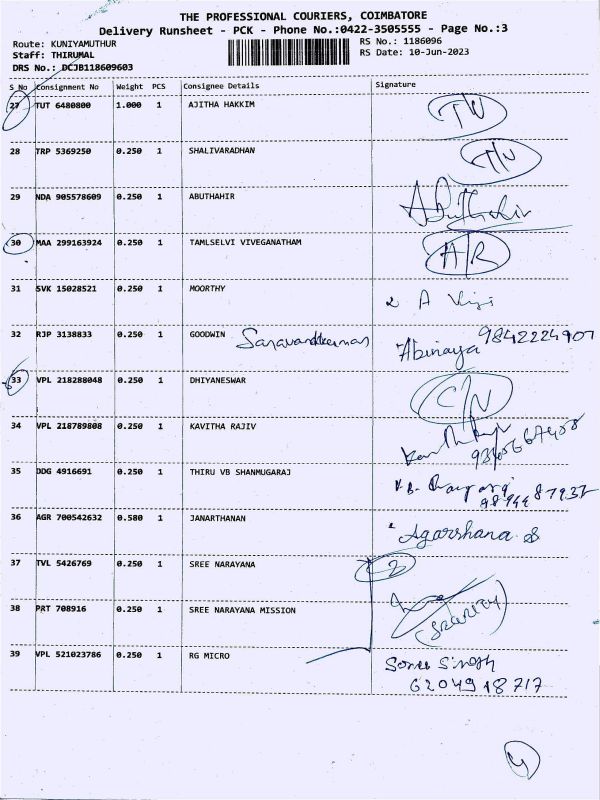 THE PROFESSIONAL COURIERS, COIMBATORE
Delivery Runsheet - PCK - Phone No.:0422-3505555 - Page No.:3
Route: KUNIYAMUTHUR RS No.: 1186096
Staff: THIRUMAL RS Date: 10-Jun-2023
DRS No.: DCJB118609603
S No Consignment No Weight PCS Consignee Details Signature
27 TUT 6480800 1.000 1 AJITHA HAKKIM
28 TRP 5369250 0.250 1 SHALIVARADHAN
29 NDA 905578609 0.250 1 ABUTHAHIR Abuthahir
30 MAA 299163924 0.250 1 TAMLSELVI VIVEGANATHAM A/R
31 SVK 15028521 0.250 1 MOORTHY
32 RJP 3138833 0.250 1 GOODWIN Abinaya 9842224907
33 VPL 218288048 0.250 1 DHIYANESWAR
34 VPL 218789808 0.250 1 KAVITHA RAJIV
35 DDG 4916691 0.250 1 THIRU VB SHANMUGARAJ
36 AGR 700542632 0.580 1 JANARTHANAN Agarshana S
37 TVL 5426769 0.250 1 SREE NARAYANA 2
38 PRT 708916 0.250 1 SREE NARAYANA MISSION
39 VPL 521023786 0.250 1 RG MICRO Singh
6204918717